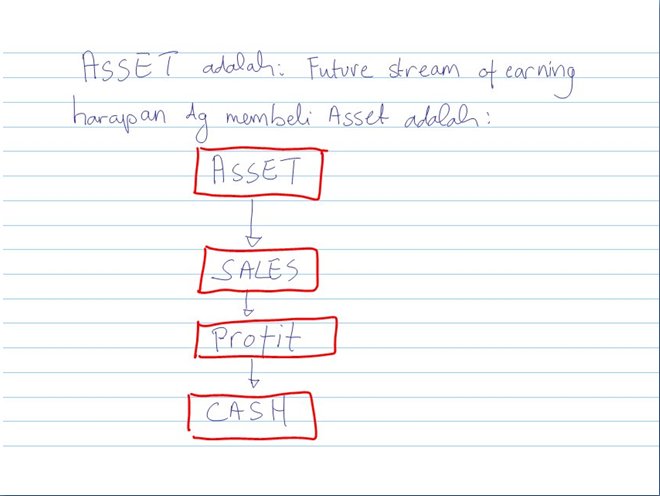 ASSET adalah: Future stream of earning
harapan dg membeli Asset adalah:
ASSET
SALES
Profit
CASH